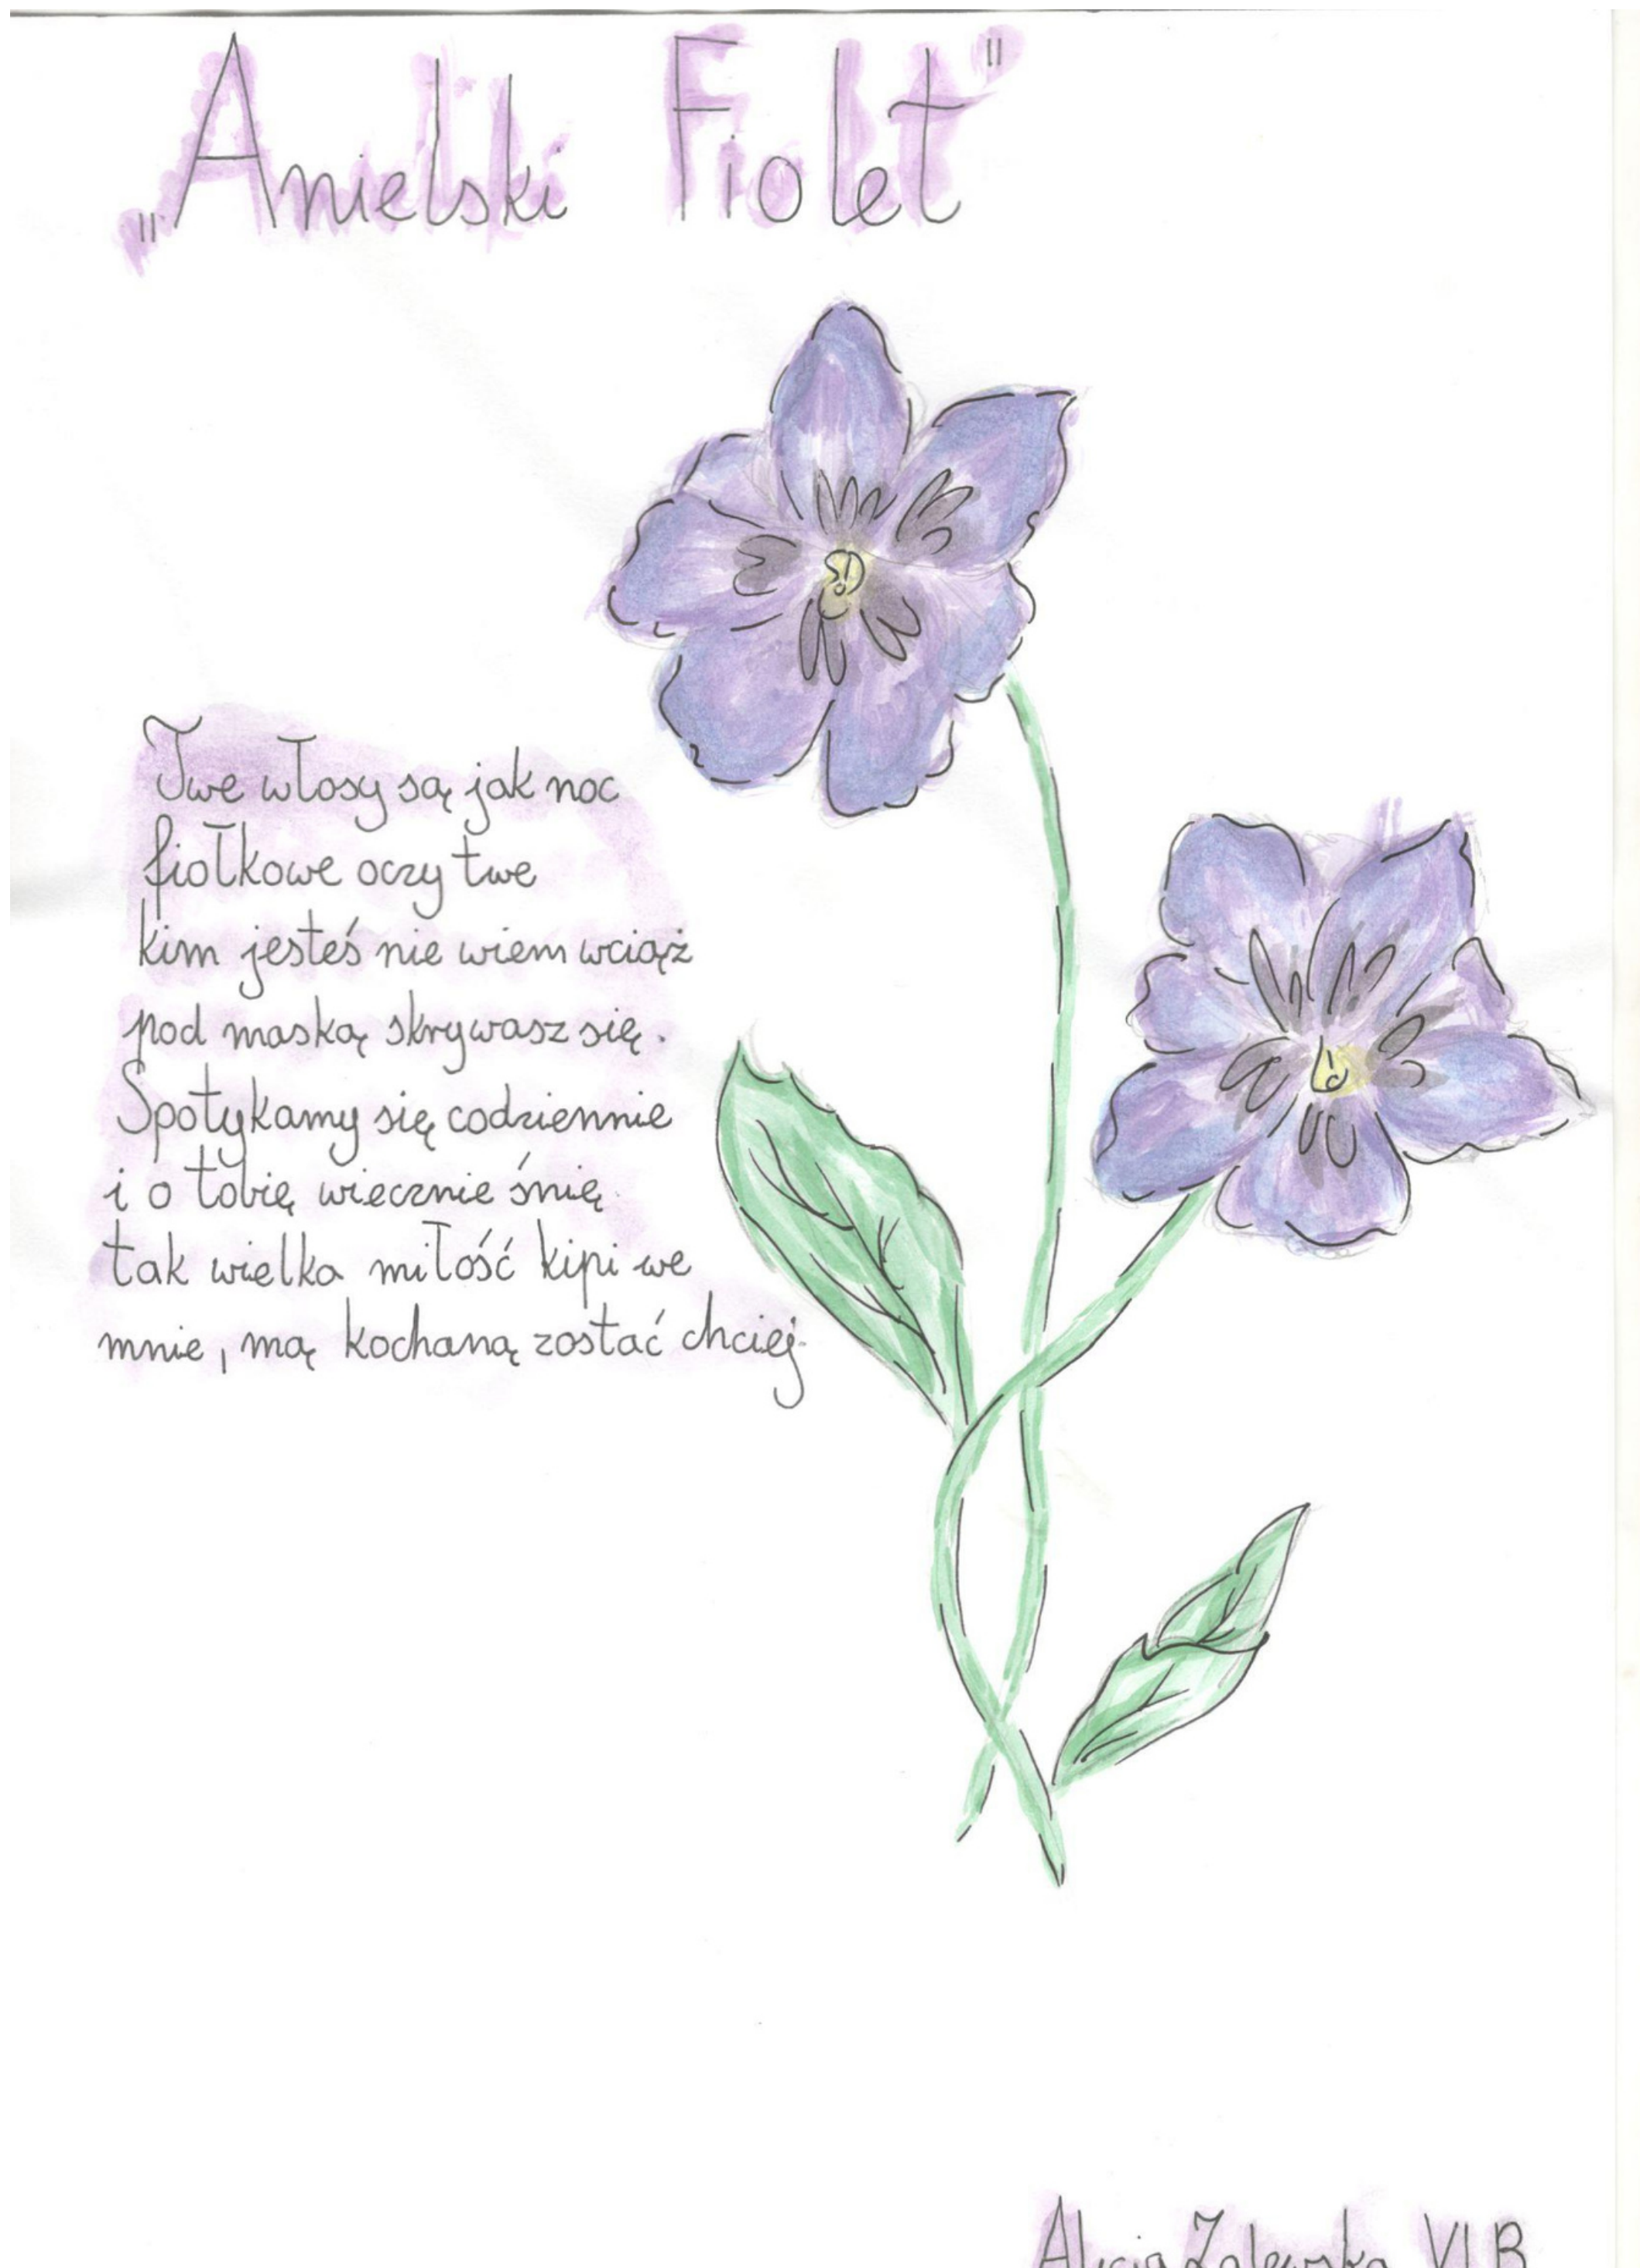 „Anielski Fiolet"
Twe włosy są jak noc
fiołkowe oczy twe
kim jesteś nie wiem wciąż
pod maską skrywasz się.
Spotykamy się codziennie
i o tobię wiecznie śnię.
tak wielka miłość kipi we
mnie, mą kochaną zostać chciej.
Alicja Zalewska VI B